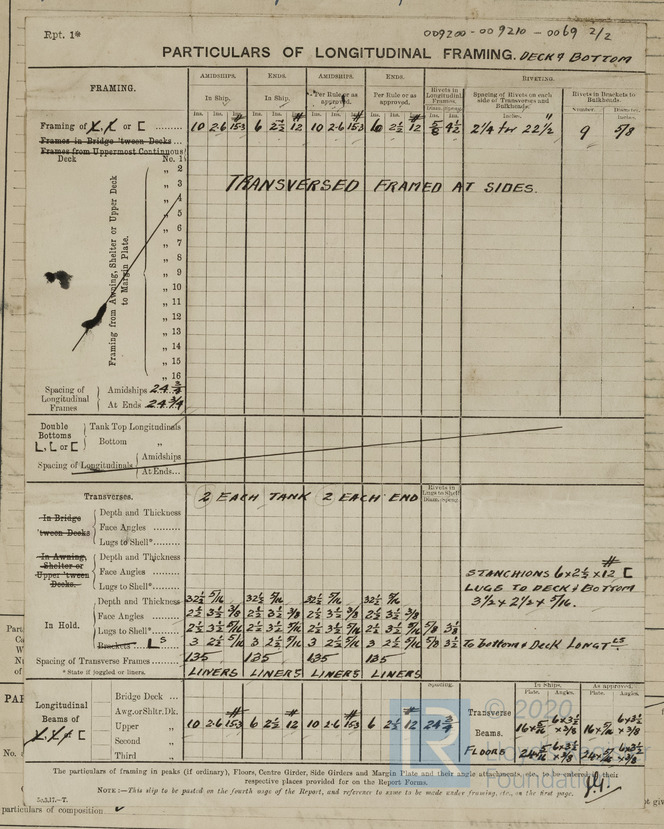 Rpt. 1*
009200-009210-0069 2/2
PARTICULARS OF LONGITUDINAL FRAMING. DECK & BOTTOM
FRAMING.
AMIDSHIPS. ENDS. AMIDSHIPS. ENDS. RIVETING.
In Ship. In Ship. Per Rule or as approved. Per Rule or as approved. Rivets in Longitudinal Frames. Spacing of Rivets on each side of Transverses and Bulkheads. Rivets in Brackets to Bulkheads.
Ins. Ins. # Ins. Ins. # Ins. Ins. # Ins. Ins. # Inches. Number. Diameter. Inches.
Framing of L, L or [ 10 2.6 15.3 6 2½ 12 10 2.6 15.3 6 2½ 12 5/8 4½ 2¼ for 22½" 9 5/8
Frames in Bridge 'tween Decks
Frames from Uppermost Continuous
Deck No. 1
„ 2
TRANSVERSED FRAMED AT SIDES.
„ 3
„ 4
„ 5
„ 6
„ 7
„ 8
„ 9
„ 10
„ 11
„ 12
„ 13
„ 14
„ 15
„ 16
Framing from Awning, Shelter or Upper Deck to Margin Plate.
Spacing of Longitudinal Frames
Amidships 24 ¾
At Ends 24 ¾
Double Bottoms L, L or [
Tank Top Longitudinals
Bottom „
Spacing of Longitudinals
Amidships
At Ends
Transverses. 2 EACH TANK 2 EACH END
Rivets in Lugs to Shell
In Bridge 'tween Decks
Depth and Thickness
Face Angles
Lugs to Shell*
In Awning, Shelter or Upper 'tween Decks.
Depth and Thickness
Face Angles
Lugs to Shell*
STANCHIONS 6 x 2½ x 12 # [
LUGS TO DECK & BOTTOM
3½ x 2½ x 5/16.
In Hold.
Depth and Thickness 32½ 5/16 32½ 5/16 32½ 5/16 32½ 5/16
Face Angles 2½ 3½ 3/8 2½ 3½ 3/8 2½ 3½ 3/8 2½ 3½ 3/8
Lugs to Shell* 2½ 3½ 5/16 2½ 3½ 5/16 2½ 3½ 5/16 2½ 3½ 5/16 5/8 3⅛
Brackets LS 3 2½ 5/16 3 2½ 5/16 3 2½ 5/16 3 2½ 5/16 5/8 3½ To bottom & Deck LONGTLS
Spacing of Transverse Frames 135 135 135 135
* State if joggled or liners. LINERS LINERS LINERS LINERS
Longitudinal Beams of L, L [
Spacing.
In Ships. As approved.
Plate. Angles. Plate. Angles.
Bridge Deck
Awg. or Shltr. Dk.
Upper „ 10 2.6 15.3 6 2½ 12 10 2.6 15.3 6 2½ 12 24 ¾
Second „
Third „
Transverse Beams. 16 x 5/16 6 x 3½ x 3/8 16 x 5/16 6 x 3½ x 3/8
FLOORS 6 x 3½ x 3/8 6 x 3½ x 3/8
The particulars of framing in peaks (if ordinary), Floors, Centre Girder, Side Girders and Margin Plate and their angle attachments, etc., to be entered in their
respective places provided for on the Report Forms.
NOTE:—This slip to be pasted on the fourth page of the Report, and reference to same to be made under framing, etc., on the first page.
particulars of composition
© 2020
LR
Foundation